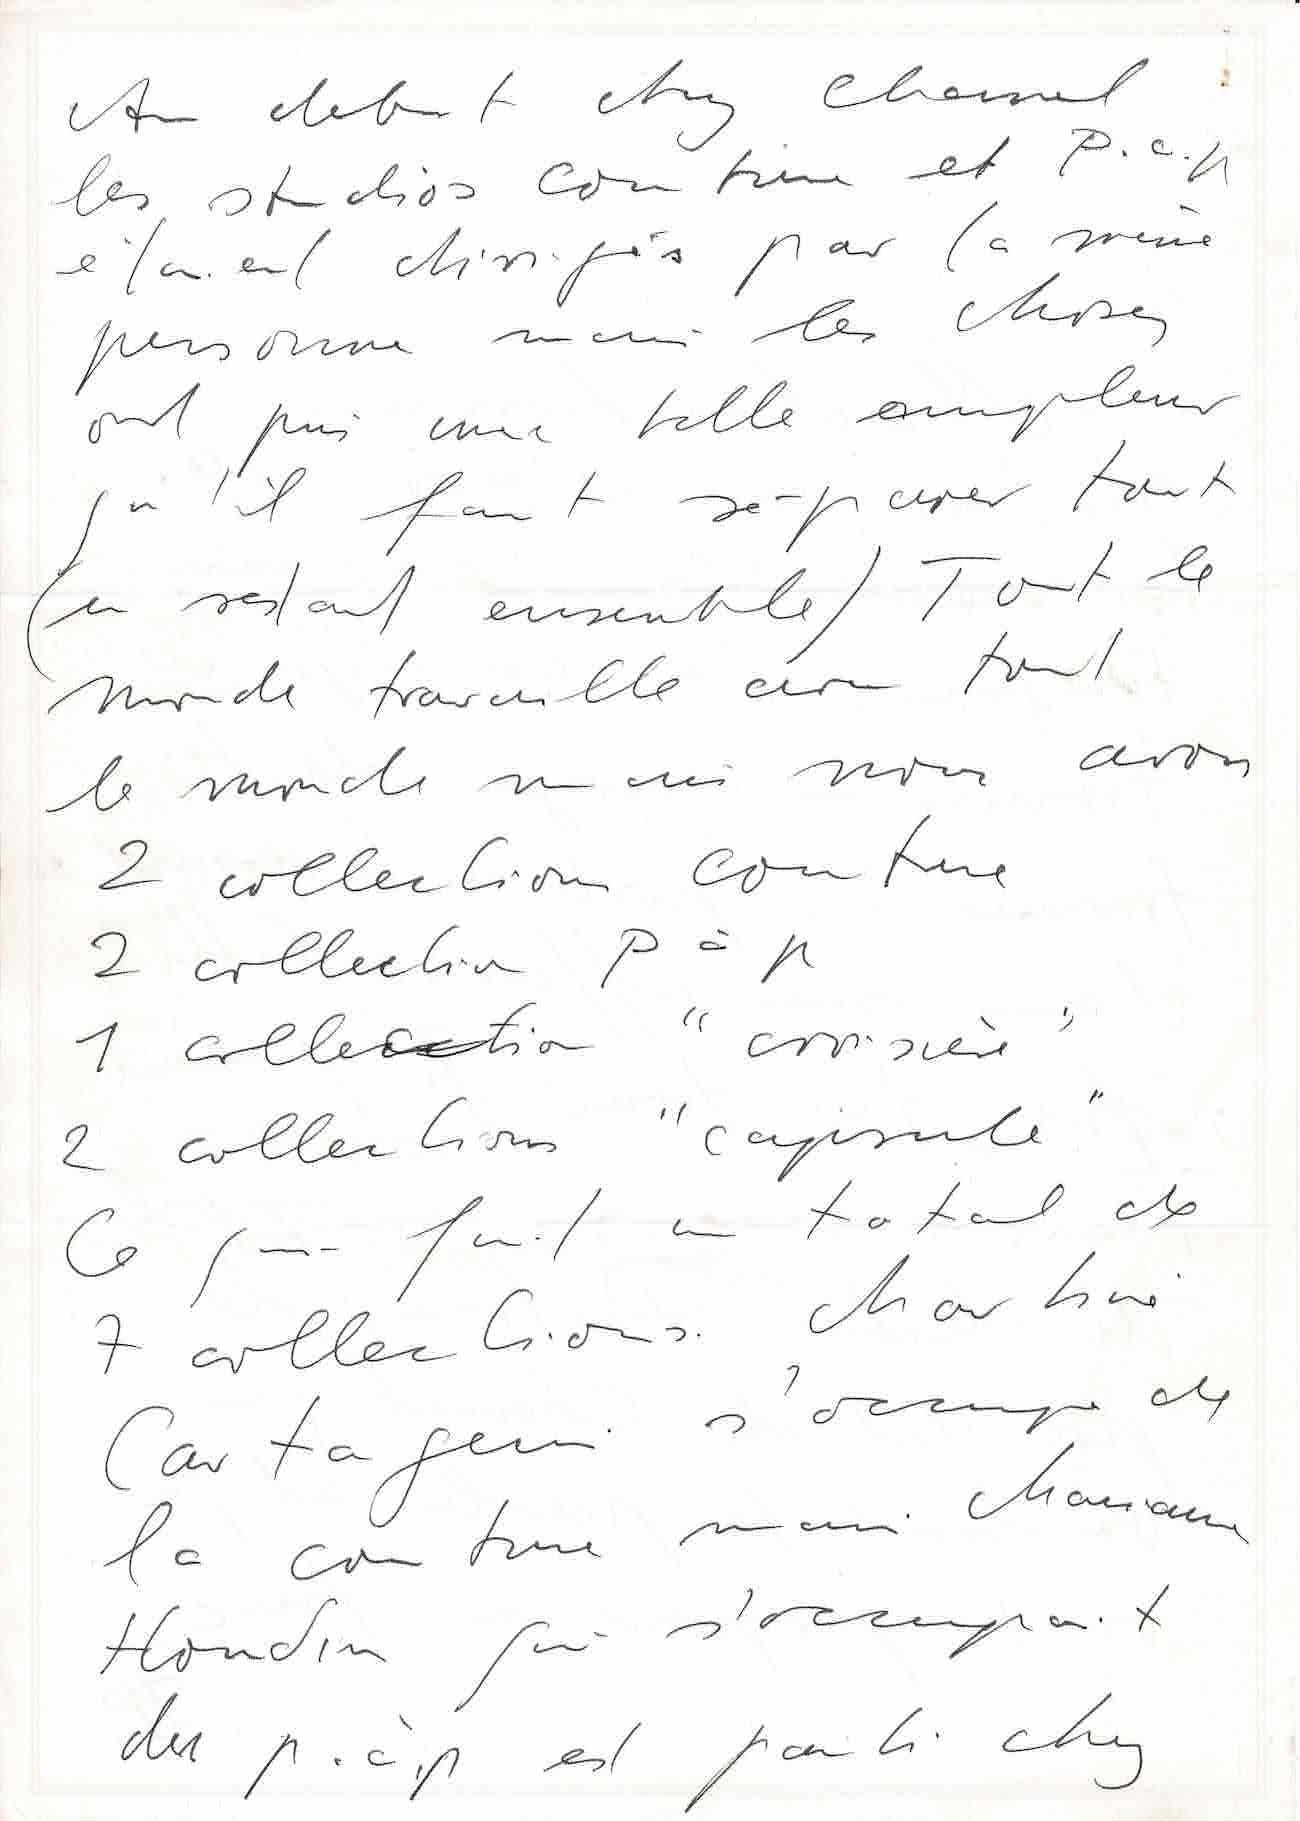 Au debut chez Chanel
les studios couture et P.a.p
étaient dirigés par la même
personne mais les choses
ont pris une telle ampleur
qu'il faut séparer tout
(en restant ensemble) Tout le
monde travaille avec tout
le monde mais nous avons
2 collections couture
2 collection P à p
1 collection "croisière"
2 collections "capsule"
Ce qui fait un total de
7 collections. Martine
Cartegini s'occupe de
la couture mais Mariane
Houdin qui s'occupait
du p.à.p est parti chez